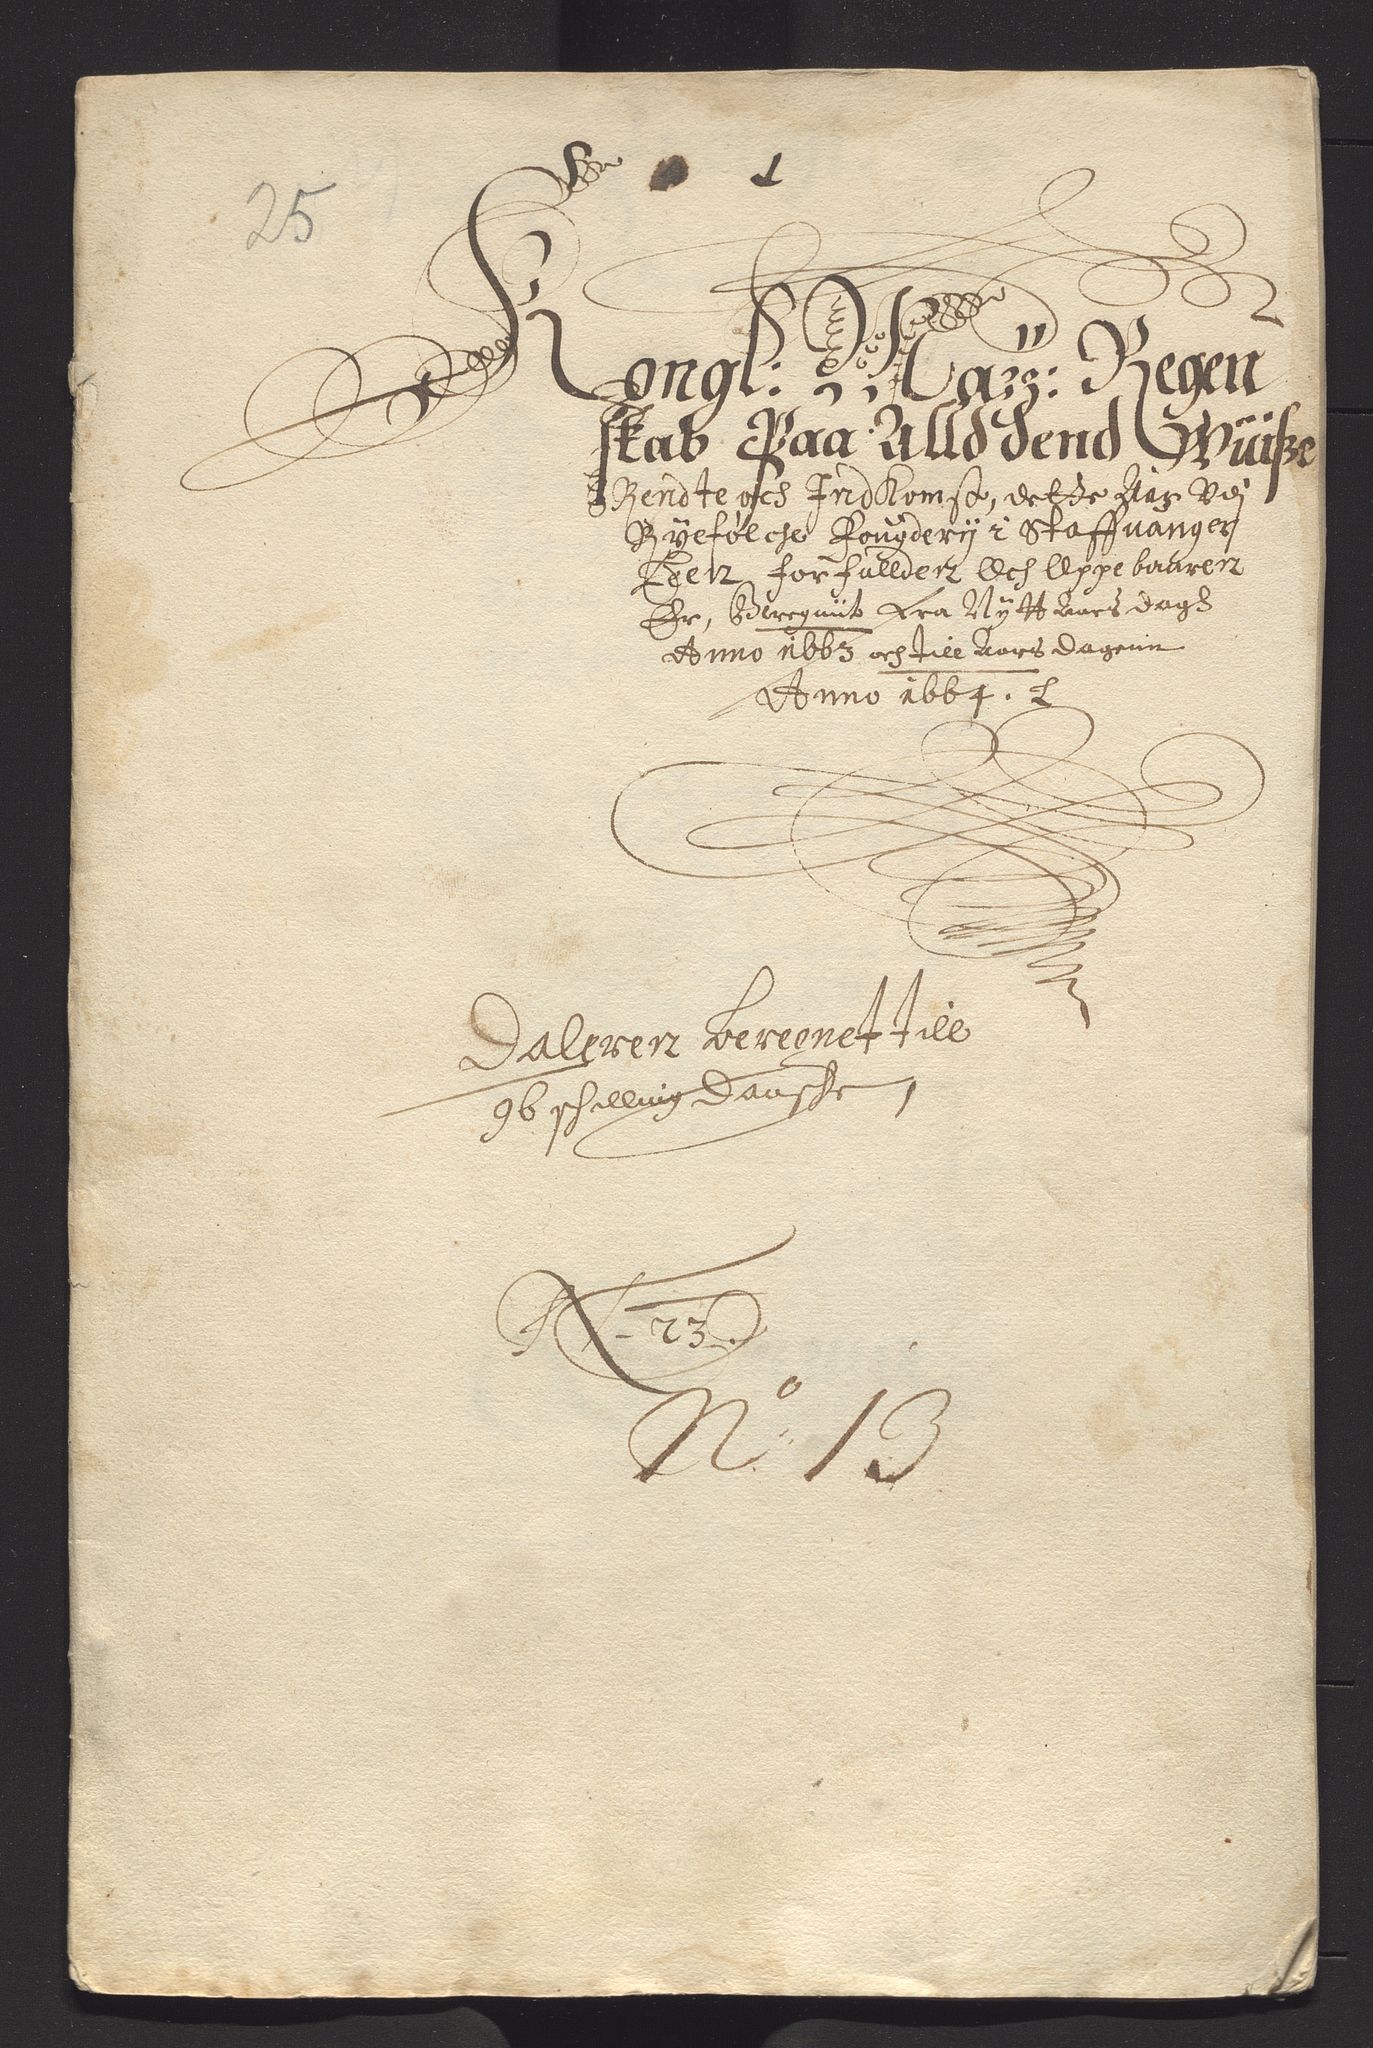 25
Kongl: Mayz: Regen
skab Paa Alld dend Wüisze
Rendte och Indkomst, dette Aar udj
Ryefölche Fougderij i Staffuanger
Leen forfallden och Oppebaaren
Er, Beregnit Fra Nytt Aars dagh
Anno 1663 och till Aars dagenn
Anno 1664.
Daleren beregnet till
96 schilling Danske
23.
No. 13